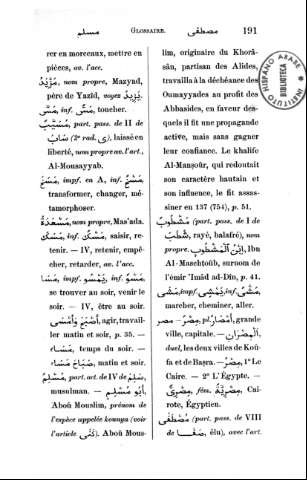 مسلم GLOSSAIRE. مصطفى 191
rer en morceaux, mettre en
pièces, av. l'acc.
مَزْيَد, nom propre, Mazyad,
père de Yazîd, voyez يَزِيد.
مَسَّ, inf. مَسّ, toucher.
مُسَيَّب, part. pass. de II de
سَابَ (2e rad. ى), laissé en
liberté, nom propre av. l'art.,
Al-Mousayyab.
مَسَخَ, impf. en A, inf. مَسْخ,
transformer, changer, mé-
tamorphoser.
مَسْعَدَة, nom propre, Mas'ada.
مَسَكَ, inf. مَسْك, saisir, re-
tenir. — IV, retenir, empê-
cher, retarder, av. l'acc.
مَسَا, impf. يَمْسُو, inf. مَسْو,
se trouver au soir, venir le
soir. — IV, être au soir.
أَصْبَحَ وَأَمْسَى, agir, travail-
ler matin et soir, p. 35. —
مَسَاء, temps du soir. —
صَبَاحَ مَسَاء, matin et soir.
مُسْلِم, part. act. de IV de سَلِمَ,
musulman. — أَبُو مُسْلِم,
Aboû Mouslim, prénom de
l'espèce appelée kounya (voir
l'article كَنَى). Aboû Mous-
lim, originaire du Khorâ-
sân, partisan des Alides,
travailla à la déchéance des
Oumayyades au profit des
Abbasides, en faveur des-
quels il fit une propagande
active, mais sans gagner
leur confiance. Le khalife
Al-Manṣoûr, qui redoutait
son caractère hautain et
son influence, le fit assas-
siner en 137 (754), p. 51.
مَشْطُوب (part. pass. de I de
شَطَبَ, rayé, balafré), nom
propre. اِبْنُ المَشْطُوب, Ibn
Al-Maschṭoûb, surnom de
l'émir 'Imâd ad-Dîn, p. 41.
مَشَى, impf. يَمْشِي, inf. مَشْى,
marcher, cheminer, aller.
مِصْر, pl. أَمْصَار, grande
ville, capitale. — المِصْرَانِ,
duel, les deux villes de Koû-
fa et de Baṣra. — مِصْر, 1° Le
Caire. — 2° L'Égypte. —
مِصْرِىّ, fém. مِصْرِيَّة, Cai-
rote, Égyptien.
مُصْطَفَى (part. pass. de VIII
de صَفَا, élu), avec l'art.
INSTITUTO HISPANO ARABE
BIBLIOTECA